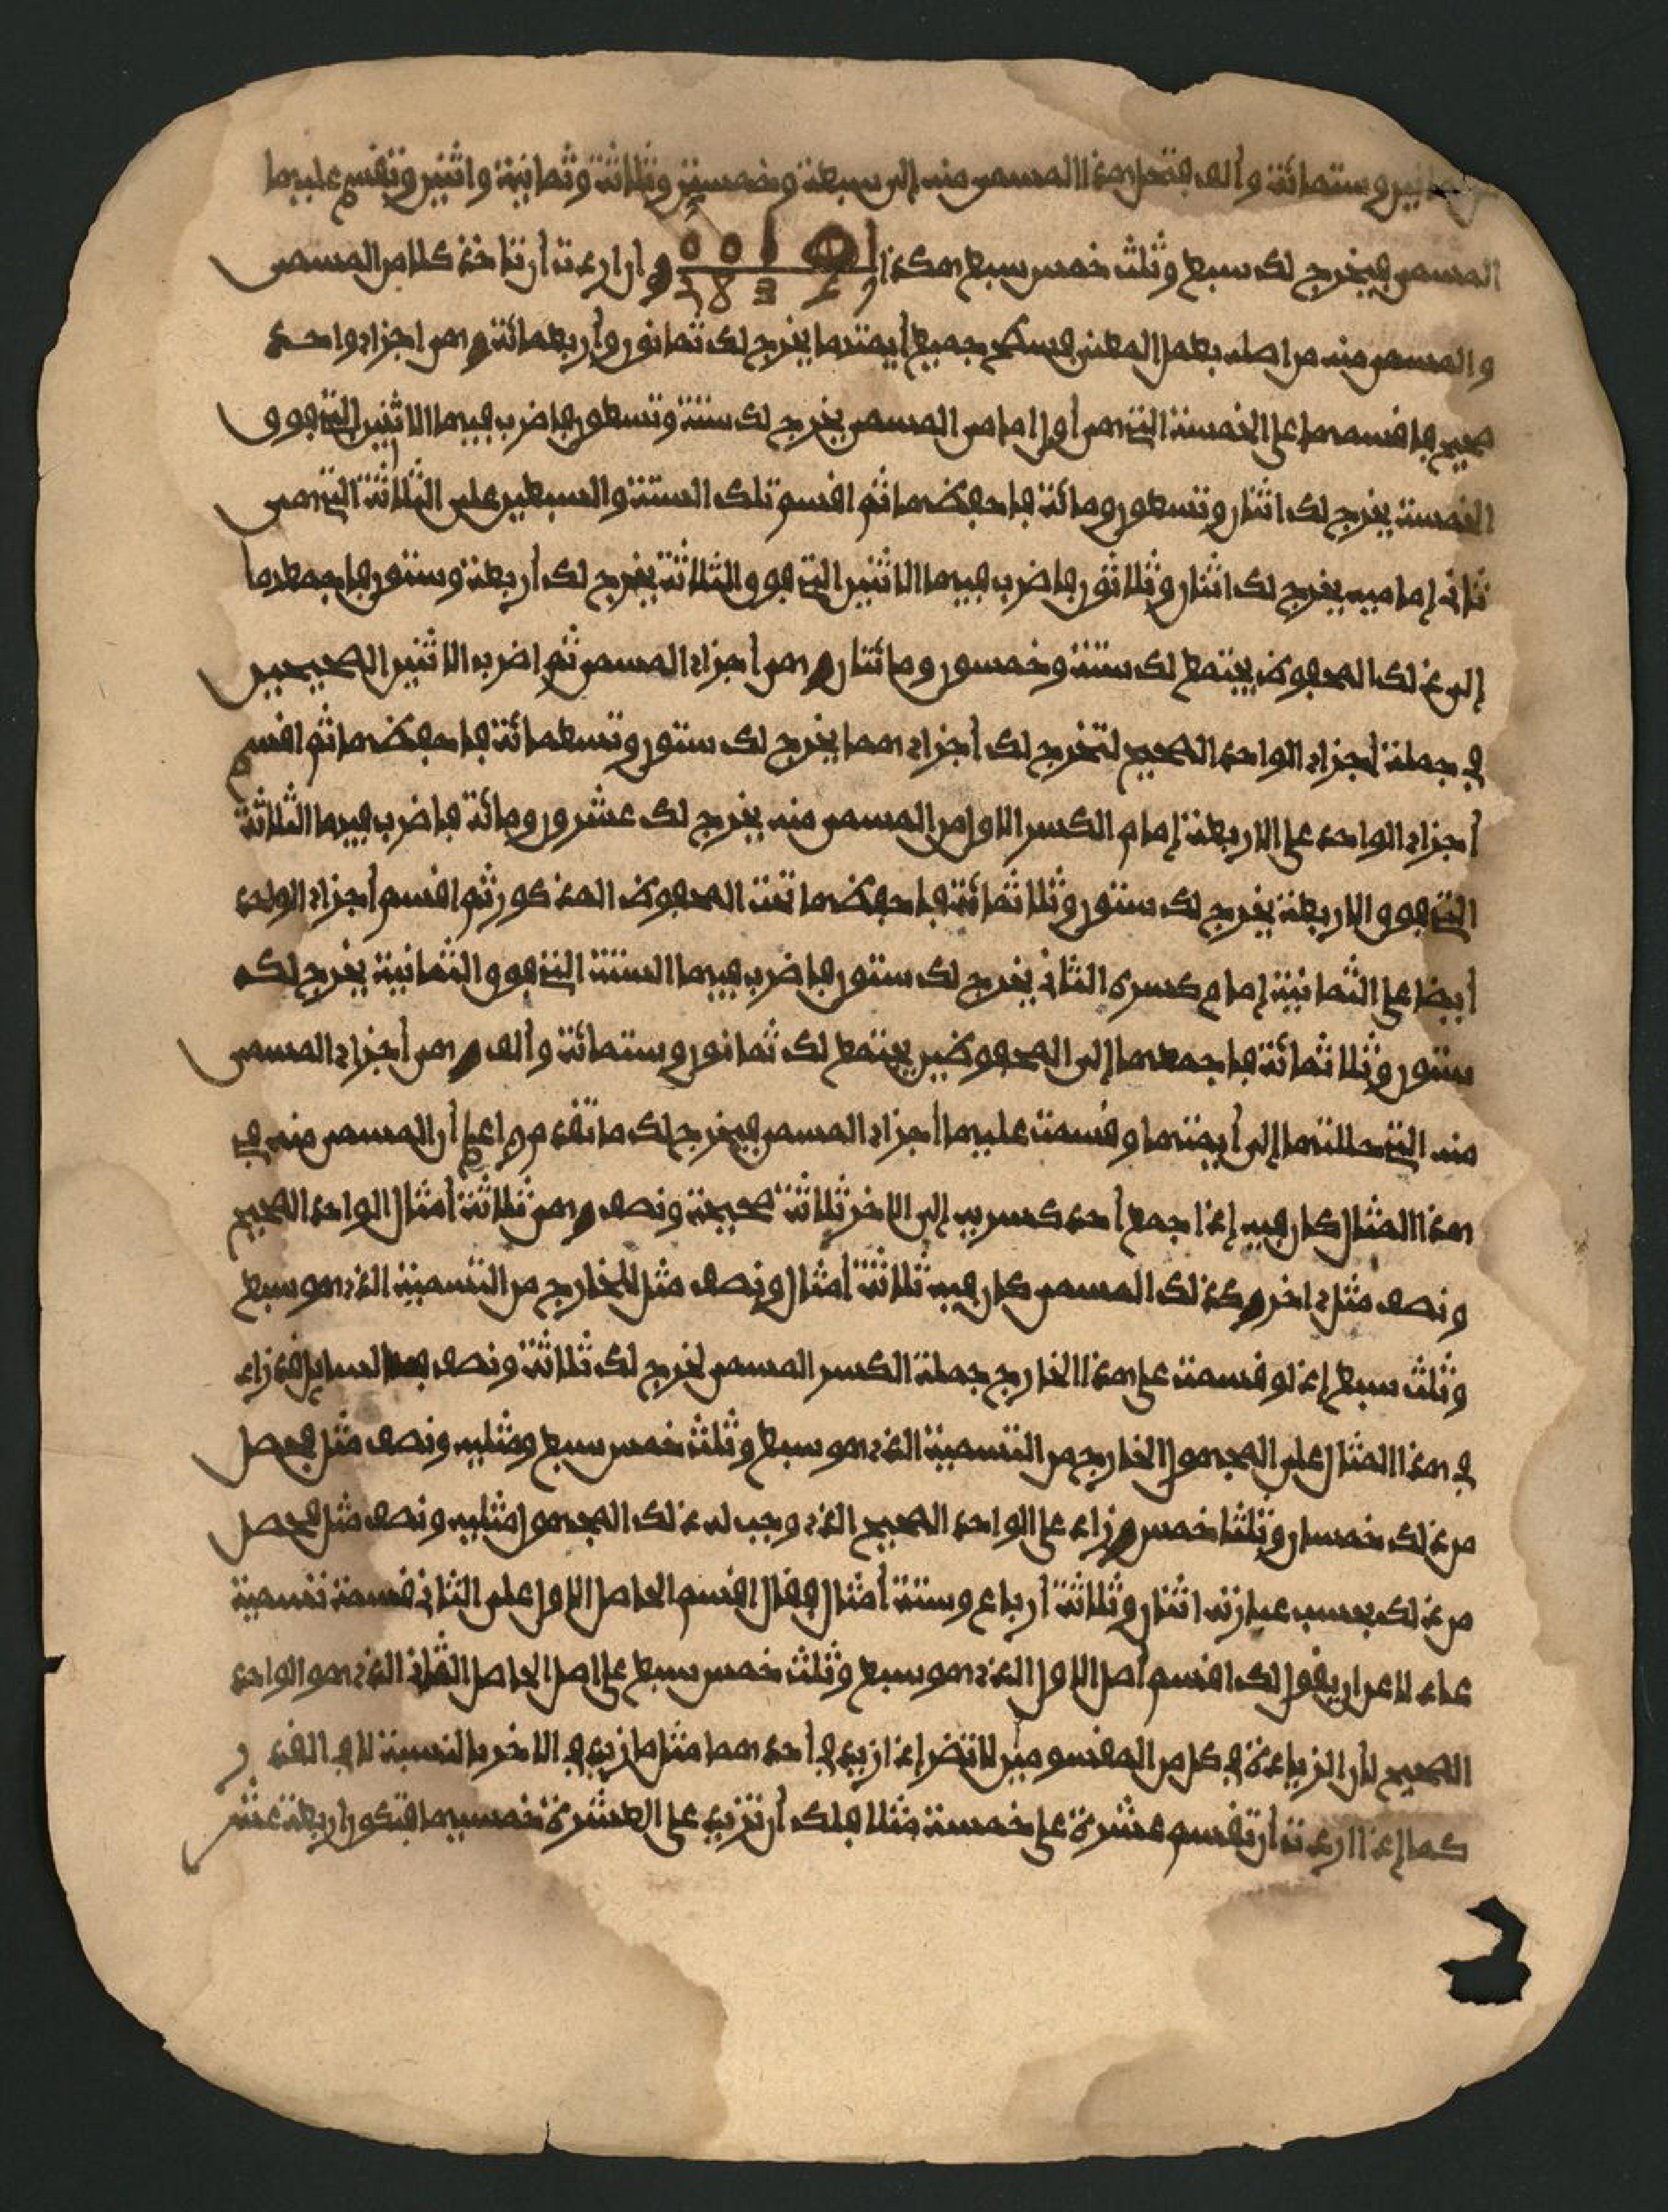 وستمائة وألف فتحل هذا المسمى منه إلى سبعة وخمسين وثلاثة وثمانية واثنين وتقسم عليها
المسمى فيخرج لك سبع وثلث خمس سبع هكذا وإن اردت أن تاخذ كلا من المسمى
والمسمى منه من اصله بعمل المعنى فسطح جميع أيمتها يخرج لك ثمانون وأربعمائة وهي اجزاء واحد
صحيح فاقسمها على الخمسة التي هي أول إمامي المسمى يخرج لك ستة وتسعون فاضرب فيها الاثنين التي فوق
الخمسة يخرج لك اثنان وتسعون ومائة فاحفظها ثم اقسم تلك الستة والسبعين على الثلاثة التي هي
ثاني إماميه يخرج لك اثنان وثلاثون فاضرب فيها الاثنين التي فوق الثلاثة يخرج لك أربعة وستون فاجمعها
إلى ذلك المحفوظ يجتمع لك ستة وخمسون ومائتان وهي أجزاء المسمى ثم اضرب الاثنين الصحيحين
في جملة أجزاء الواحد الصحيح لتخرج لك أجزاءهما يخرج لك ستون وتسعمائة فاحفظها ثم اقسم
أجزاء الواحد على الاربعة إمام الكسر الاول من المسمى منه يخرج لك عشرون ومائة فاضرب فيها الثلاثة
التي فوق الاربعة يخرج لك ستون وثلاثمائة فاحفظها تحت المحفوظ المذكور ثم اقسم أجزاء الواحد
أيضا على الثمانية إمام كسره الثاني يخرج لك ستون فاضرب فيها الستة التي فوق الثمانية يخرج لك
ستون وثلاثمائة فاجمعها إلى المحفوظين يجتمع لك ثمانون وستمائة وألف وهي أجزاء المسمى
منه التي حللتها إلى أيمتها وقسمت عليها أجزاء المسمى فيخرج لك ما تقدم واعلم أن المسمى منه في
هذا المثال كان فيه إذا جمع أحد كسريه إلى الاخر ثلاثة صحيحة ونصف وهي ثلاثة أمثال الواحد الصحيح
ونصف مثل اخر وكذلك المسمى كان فيه ثلاثة أمثال ونصف مثل للخارج من التسمية الذي هو سبع
وثلث سبع إذ لو قسمت على هذا الخارج جملة الكسر المسمى لخرج لك ثلاثة ونصف السايل قد زاد
في هذا المثال على المجهول الخارج من التسمية الذي هو سبع وثلث خمس سبع ومثليه ونصف مثل فحصل
من ذلك خمسان وثلثا خمس وزاد على الواحد الصحيح الذي وجب له ذلك المجهول مثليه ونصف مثل فحصل
من ذلك بحسب عبارته اثنان وثلاثة أرباع وستة أثمان فقال اقسم الحاصل الاول على الثاني قسمة تسمية
عاد لامر ان يقول لك اقسم أصل الاول الذي هو سبع وثلث خمس سبع على اصل الحاصل الثاني الذي هو الواحد
الصحيح لأن الزيادة في كل من المقسومين لا تضر إذا زيد في أحدهما مثل ما زيد في الاخر بالنسبة لا في القدر
كما إذا اردت أن تقسم عشرة على خمسة مثلا فلك أن تزيد على العشرة خمسيها فتكون اربعة عشر